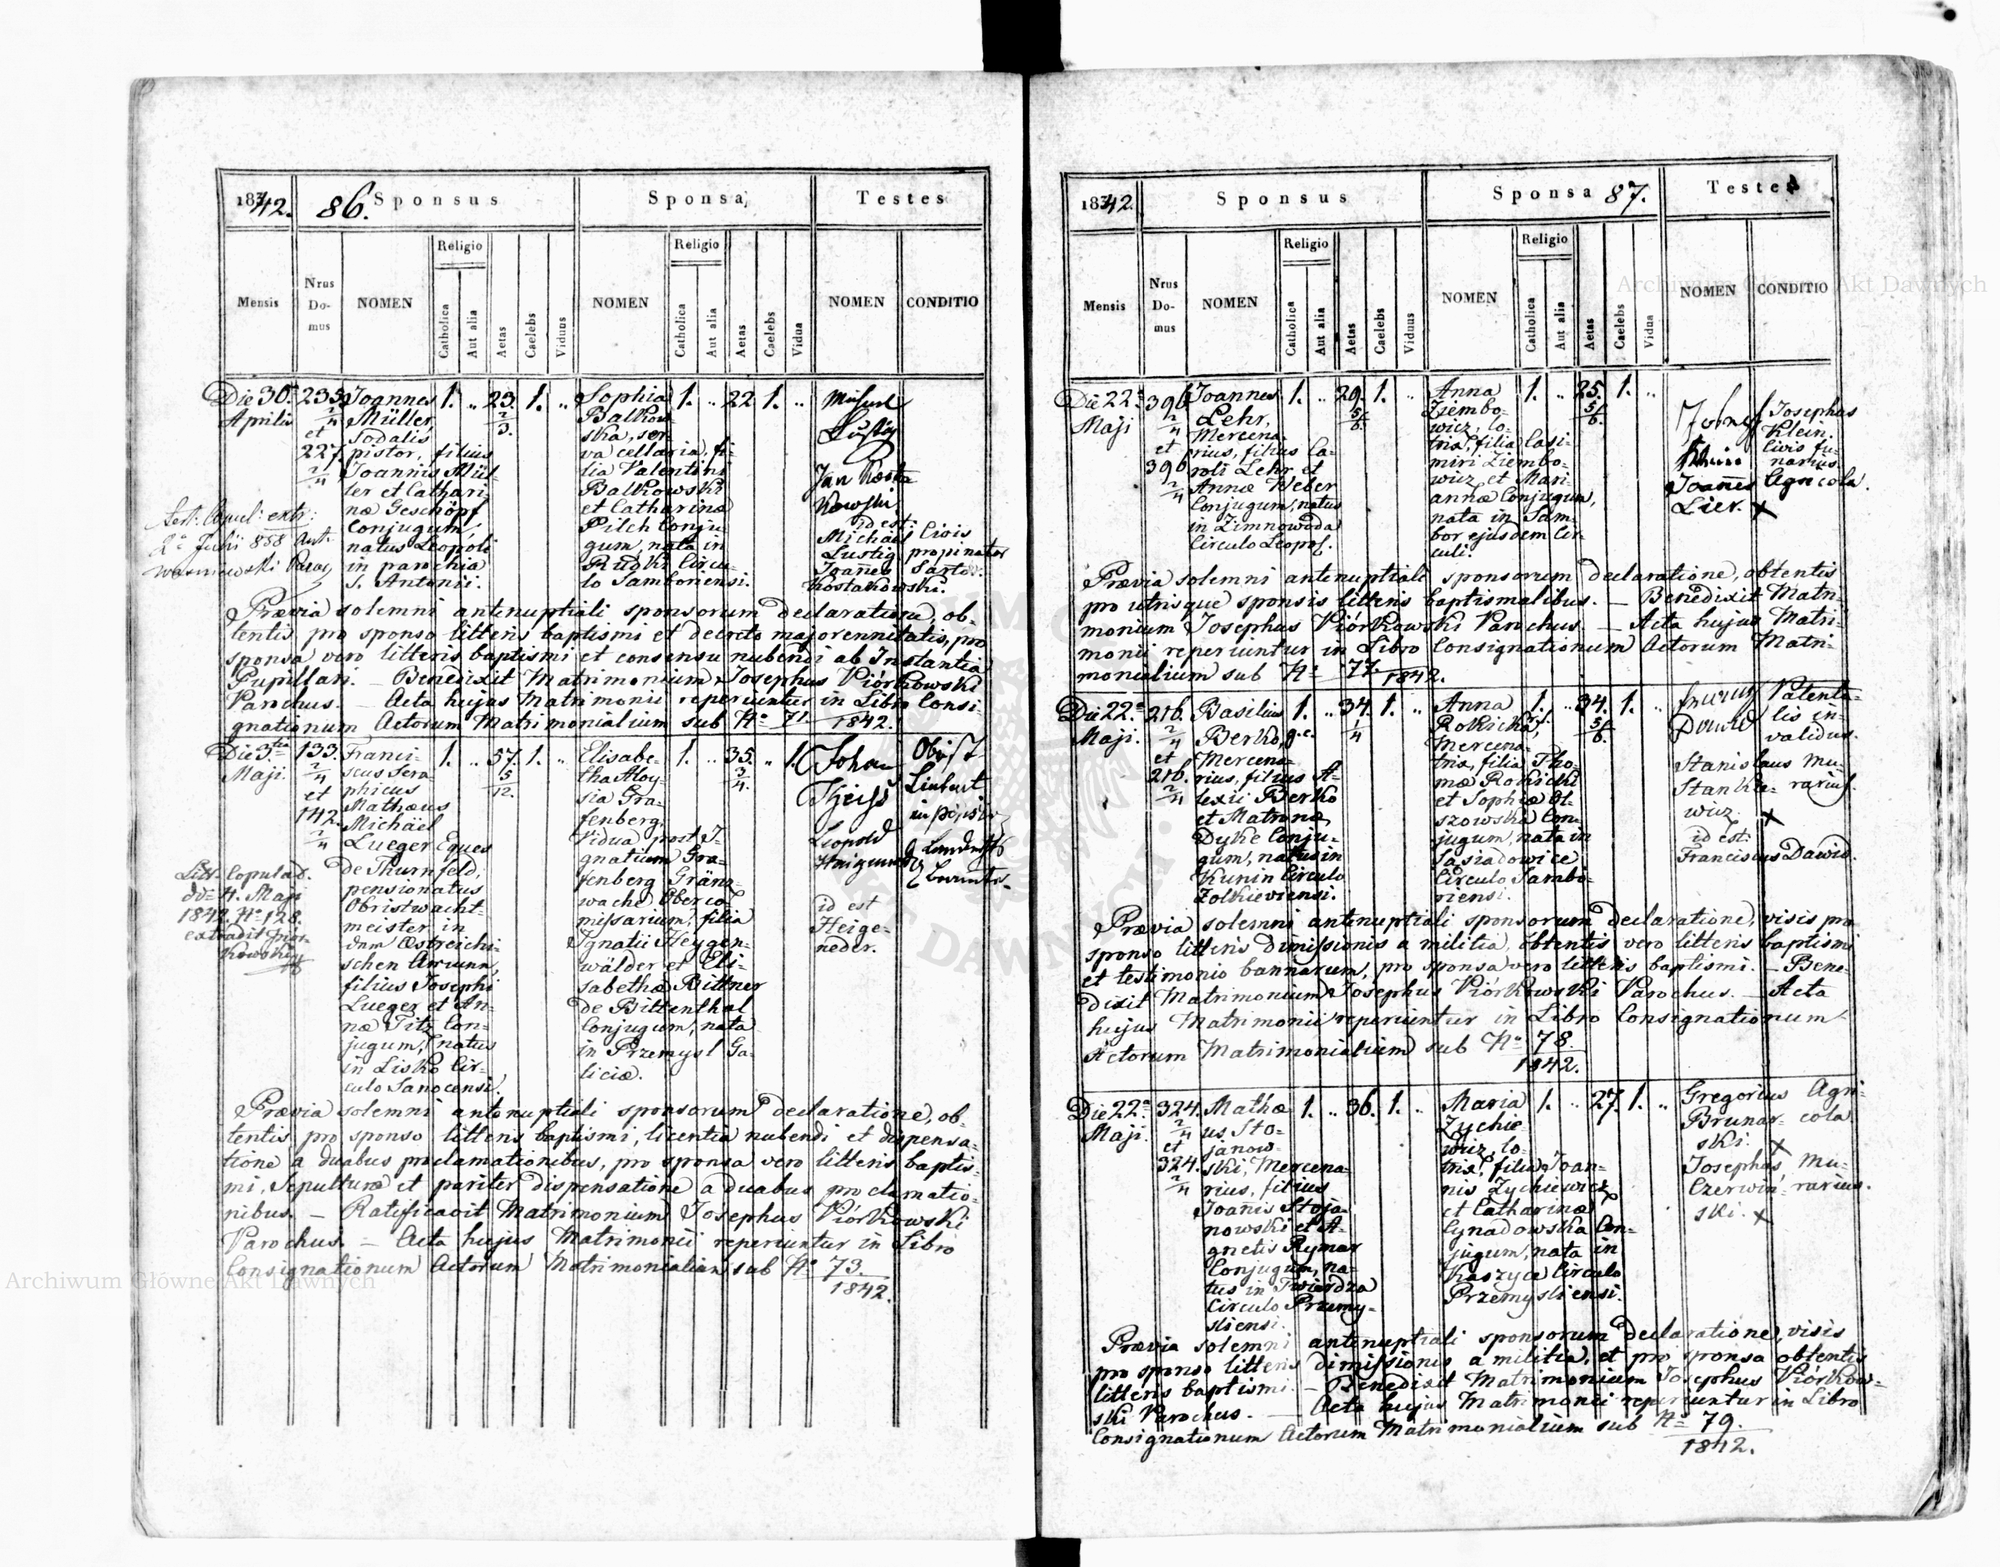 1842. 86. Sponsus Sponsa, Testes
Mensis Nrus Do- mus NOMEN Religio Catholica Aut alia Aetas Caelebs Viduus NOMEN Religio Catholica Aut alia Aetas Caelebs Vidua NOMEN CONDITIO
Die 30. Aprilis
233 2/4 et 227. 2/4
Joannes
Müller,
Sodalis
pistor, filius
Joannis Mül-
ler et Cathari-
næ Geschöpf
Conjugum,
natus Leopoli
in parochia
S. Antonii.
1. „ 23. 2/3. 1. „
Sophia
Balkow-
ska, ser-
va cellaria, fi-
lia Valentini
Balkowski
et Catharinæ
Pilch Conju-
gum, nata in
Rudki Circu-
lo Samboriensi.
1. „ 22 1. „
Michael
Lustig
Jan Kosta
kowski
id est:
Michael Civis
Lustig propinator
Joañes Sartor.
Kostakowski.
2a Julii 858
Prævia solemni antenuptiali sponsorum declaratione, ob-
tentis pro sponso litteris baptismi et decreto majorennitatis, pro
sponsa vero litteris baptismi et consensu nubendi ab Instantia
Pupillari. — Benedixit Matrimonium Josephus Piórkowski
Parochus. — Acta hujus Matrimonii reperiuntur in Libro Consi-
gnationum Actorum Matrimonialium sub No 71. 1842.
Die 3tia
Maji.
133. 2/4 et 142. 2/4
Franci-
scus Sera-
phicus
Mathæus
Michäel
Lueger Eques
de Thurnfeld,
pensionatus
Obristwacht-
meister in
dem Œstreichi-
schen Armeen,
filius Josephi
Lueger et An-
næ Titz Con-
jugum, natus
in Lisko Cir-
culo Sanocensi.
1. „ 57. 5/12. 1. „
Elisabe-
tha Aloy-
sia Gra-
fenberg,
Vidua post I-
gnatium Gra-
fenberg Gränz-
wache Oberco-
missarium, filia
Ignatii Heygen-
wälder et Eli-
sabethæ Bittner
de Bittenthal
Conjugum, nata
in Przemysl Ga-
liciæ.
1. „ 35. 3/4. „ 1.
Johan
Theiss
Leopold
id est
Heige-
neder.
Litt. Copulat.
dd= 4. Maji
1842. No 128.
extradit Piór-
kowski
Prævia solemni antenuptiali sponsorum declaratione, ob-
tentis pro sponso litteris baptismi, licentia nubendi et dispensa-
tione a duabus proclamationibus, pro sponsa vero litteris baptis-
mi, Sepulturæ et pariter dispensatione a duabus proclamatio-
nibus. — Ratificavit Matrimonium Josephus Piórkowski
Parochus. — Acta hujus Matrimonii reperiuntur in Libro
Consignationum Actorum Matrimonialium sub No 73.
1842.
1842. Sponsus Sponsa 87. Testes
Mensis Nrus Do- mus NOMEN Religio Catholica Aut alia Aetas Caelebs Viduus NOMEN Religio Catholica Aut alia Aetas Caelebs Vidua NOMEN CONDITIO
Die 22a
Maji
396 2/4 et 396 2/4
Joannes
Lehr,
Mercena-
rius, filius Ca-
roli Lehr et
Annæ Weber
Conjugum, natus
in Zimnowoda
Circulo Leopol.
1. „ 29. 5/6. 1. „
Anna
Ziembo-
wicz, Lo-
trix, filia Casi-
miri Ziembo-
wicz et Mari-
annæ Conjugum,
nata in Sam-
bor ejusdem Cir-
culi.
1. „ 25. 5/6. 1. „
Josephus
Klein
Civis fu-
narius.
Joañes Agricola.
Lier. x
Prævia solemni antenuptiali sponsorum declaratione, obtentis
pro utrisque sponsis litteris baptismalibus. — Benedixit Matri-
monium Josephus Piórkowski Parochus. — Acta hujus Matri-
monii reperiuntur in Libro Consignationum Actorum Matri-
monialium sub No 77. 1842.
Die 22a
Maji.
216. 2/4 et 216. 2/4
Basilius
Berko, g.c.
Mercena-
rius, filius A-
lexii Berko
et Matronæ
Dyke Conju-
gum, natus in
Kunin Circulo
Zolkieviensi.
1. „ 34. 1/4 1. „
Anna
Rokicka,
Mercena-
trix, filia Tho-
mæ Rokicki
et Sophiæ Ol-
szowska Con-
jugum, nata in
Sasiadowice
Circulo Sambo-
riensi.
1. „ 34. 5/6. 1. „
Dawid Patenta-
lis in-
validus.
Stanislaus Mu-
Stankie- rarius.
wicz x
id est:
Franciscus Dawid.
Prævia solemni antenuptiali sponsorum declaratione, visis pro
sponso litteris dimissionis a militia, obtentis vero litteris baptismi
et testimonio bannorum, pro sponsa vero litteris baptismi. — Bene-
dixit Matrimonium Josephus Piórkowski Parochus. — Acta
hujus Matrimonii reperiuntur in Libro Consignationum
Actorum Matrimonialium sub No 78.
1842.
Die 22a
Maji.
324. 2/4 et 324. 2/4
Mathæ-
us Sto-
janow-
ski, Mercena-
rius, filius
Joanis Stoja-
nowski et A-
gnetis Rymar
Conjugum, na-
tus in Twierdza
Circulo Przemy-
sliensi.
1. „ 36. 1. „
Maria
Zychie-
wicz, Lo-
trix, filia Joan-
nis Zychiewicz
et Catharinæ
Cynadowska Con-
jugum, nata in
Koszyce Circulo
Przemysliensi.
1. „ 27. 1. „
Gregorius Agri-
Brunar- cola
ski. x
Josephus Mu-
Czerwiń- rarius.
ski. x
Prævia solemni antenuptiali sponsorum declaratione, visis
pro sponso litteris dimissionis a militia, et pro sponsa obtentis
litteris baptismi. — Benedixit Matrimonium Josephus Piórkow-
ski Parochus. — Acta hujus Matrimonii reperiuntur in Libro
Consignationum Actorum Matrimonialium sub No 79.
1842.
Archiwum Główne Akt Dawnych
Archiwum Główne Akt Dawnych